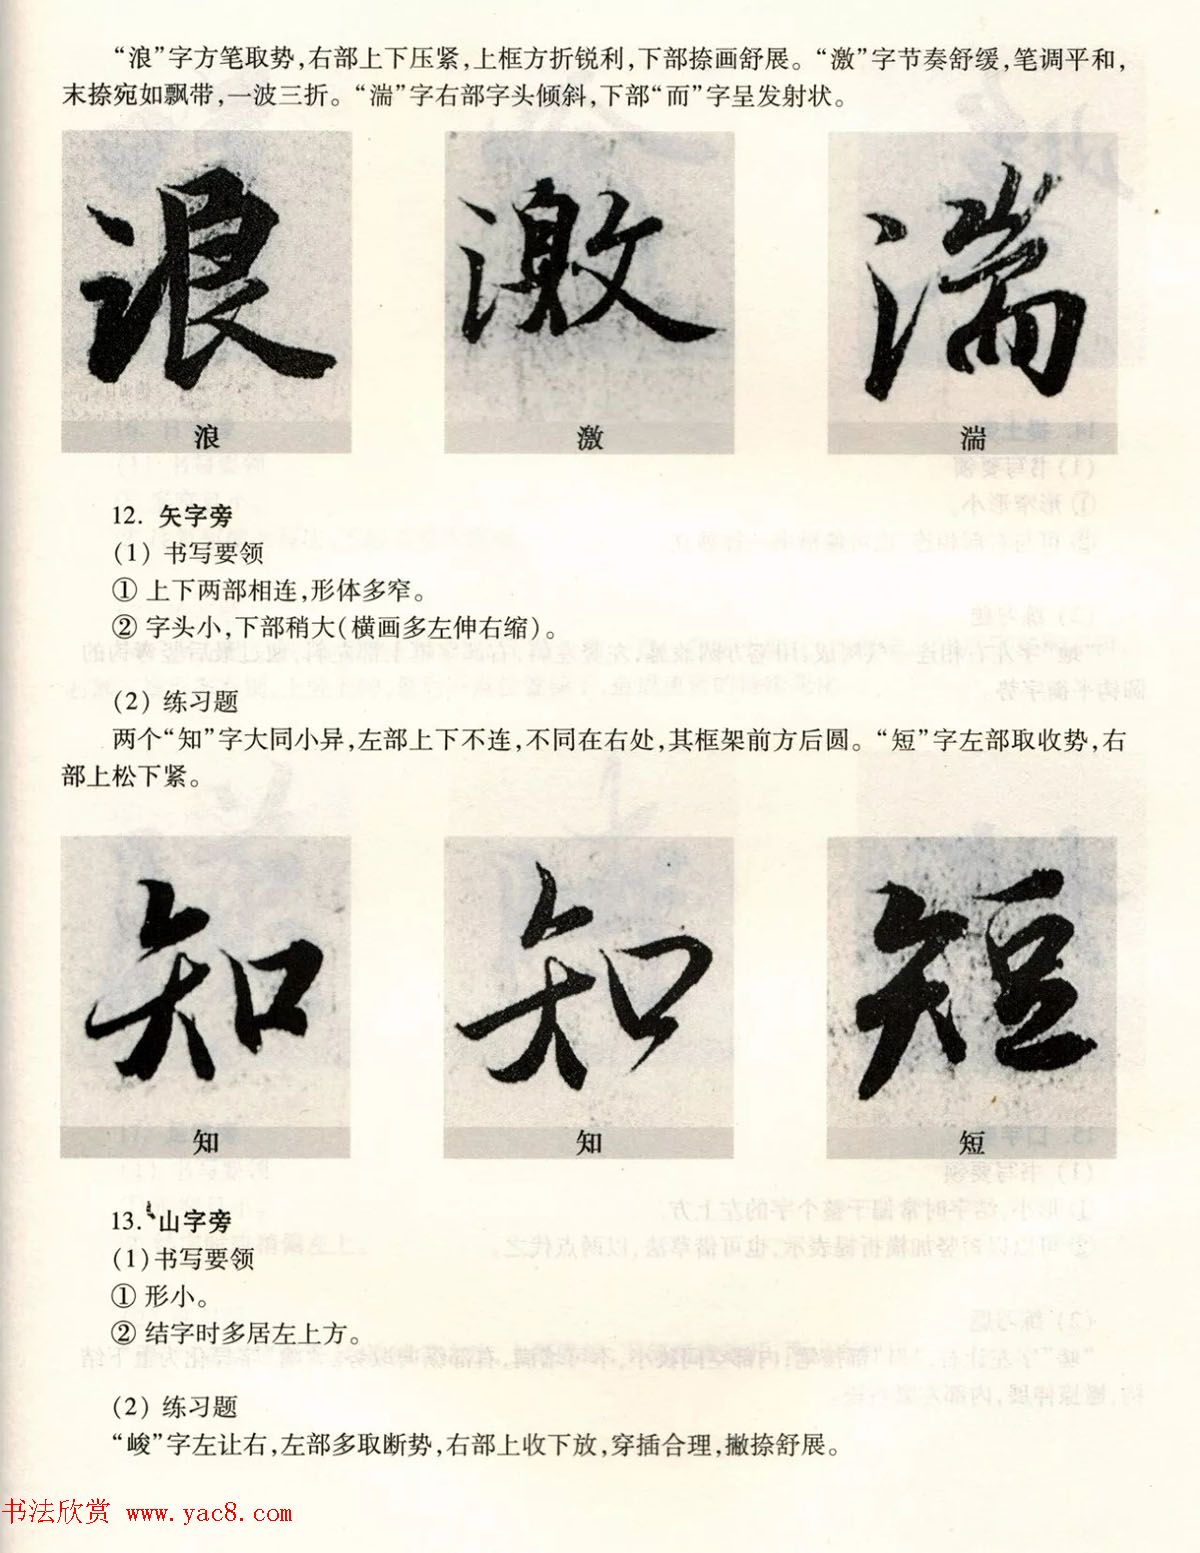 “浪”字方笔取势，右部上下压紧，上框方折锐利，下部捺画舒展。“激”字节奏舒缓，笔调平和，
末捺宛如飘带，一波三折。“湍”字右部字头倾斜，下部“而”字呈发射状。
浪 激 湍
浪 激 湍
12. 矢字旁
(1) 书写要领
① 上下两部相连，形体多窄。
② 字头小，下部稍大(横画多左伸右缩)。
(2) 练习题
两个“知”字大同小异，左部上下不连，不同在右处，其框架前方后圆。“短”字左部取收势，右
部上松下紧。
知 知 短
知 知 短
13. 山字旁
(1)书写要领
① 形小。
② 结字时多居左上方。
(2) 练习题
“峻”字左让右，左部多取断势，右部上收下放，穿插合理，撇捺舒展。
书法欣赏 www.yac8.com